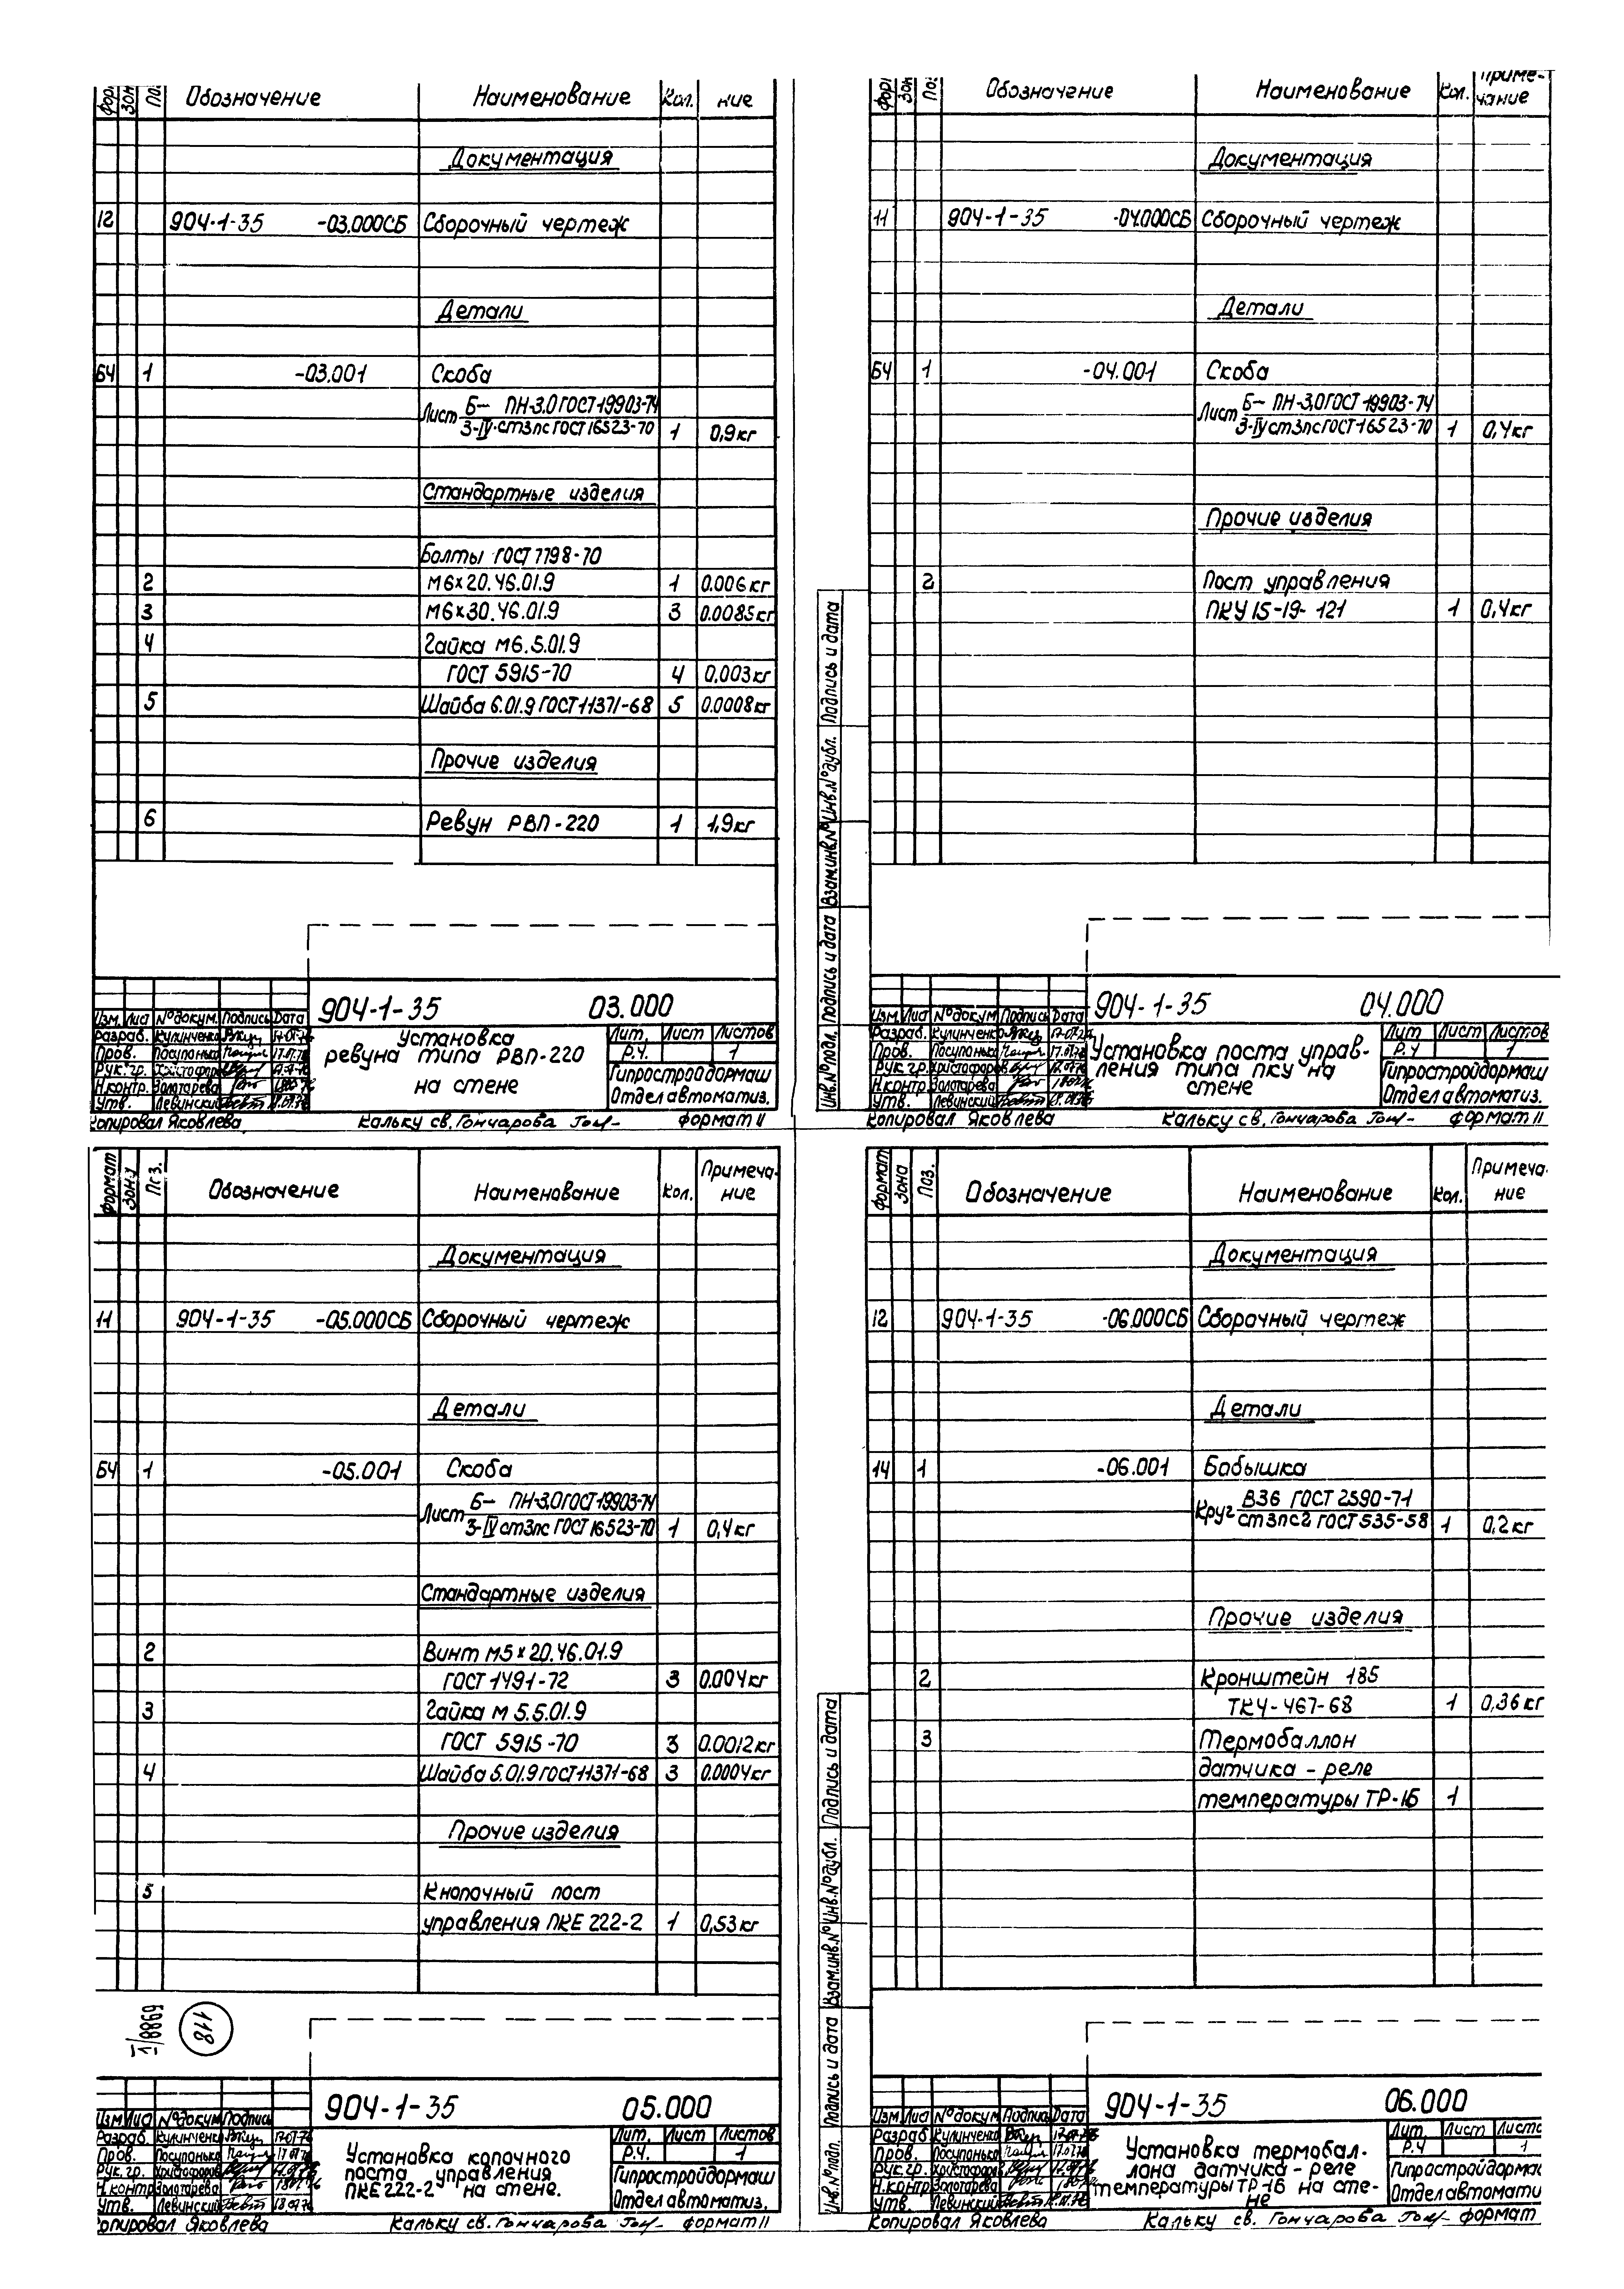 Обозначение Наименование Кол. ние
Документация
12 904-1-35 -03.000СБ Сборочный чертеж
Детали
БЧ 1 -03.001 Скоба
Лист Б- ПН-3.0 ГОСТ 19903-74
3-IV-ст3пс ГОСТ 16523-70 1 0,9кг
Стандартные изделия
Болты ГОСТ 7798-70
2 М6×20.46.01.9 1 0.006кг
3 М6×30.46.01.9 3 0.0085кг
4 Гайка М6.5.01.9
ГОСТ 5915-70 4 0,003кг
5 Шайба 6.01.9 ГОСТ 11371-68 5 0.0008кг
Прочие изделия
6 Ревун РВП-220 1 1,9кг
904-1-35 03.000
Изм. Лис № докум. Подпись Дата
Разраб. Кулинченко
Пров. Посупонько
Рук. гр. Христофоров
Н.контр. Золотарева
Утв. Левинский
Установка
ревуна типа РВП-220
на стене
Лит. Лист Листов
Р.Ч. 1
Гипростройдормаш
Отдел автоматиз.
Копировал Яковлева Кальку св. Гончарова формат 11
Обозначение Наименование Кол. Приме-
чание
Документация
11 904-1-35 -04.000СБ Сборочный чертеж
Детали
БЧ 1 -04.001 Скоба
Лист Б- ПН-3,0 ГОСТ 19903-74
3-IV ст3пс ГОСТ 16523-70 1 0,4кг
Прочие изделия
2 Пост управления
ПКУ 15-19-121 1 0,4кг
Инв.№ подл. Подпись и дата Взам.инв.№ Инв.№ дубл. Подпись и дата
904-1-35 04.000
Изм. Лис № докум. Подпись Дата
Разраб. Кулинченко
Пров. Посупонько
Рук. гр. Христофоров
Н.контр. Золотарева
Утв. Левинский
Установка поста управ-
ления типа ПКУ на
стене
Лит Лист Листов
Р.Ч 1
Гипростройдормаш
Отдел автоматиз.
Копировал Яковлева Кальку св. Гончарова формат 11
Формат Зона Поз. Обозначение Наименование Кол. Примеча-
ние
Документация
11 904-1-35 -05.000СБ Сборочный чертеж
Детали
БЧ 1 -05.001 Скоба
Лист Б- ПН-3,0 ГОСТ 19903-74
3-IV ст3пс ГОСТ 16523-70 1 0,4кг
Стандартные изделия
2 Винт М5×20.46.01.9
ГОСТ 1491-72 3 0.004кг
3 Гайка М 5.5.01.9
ГОСТ 5915-70 3 0.0012кг
4 Шайба 5.01.9 ГОСТ 11371-68 3 0.0004кг
Прочие изделия
5 Кнопочный пост
управления ПКЕ 222-2 1 0,53кг
118
904-1-35 05.000
Изм Лис № докум Подпись
Разраб. Кулинченко
Пров. Посупонько
Рук. гр. Христофоров
Н.контр Золотарева
Утв. Левинский
Установка копочного
поста управления
ПКЕ 222-2 на стене.
Лит. Лист Листов
Р.Ч. 1
Гипростройдормаш
Отдел автоматиз.
Копировал Яковлева Кальку св. Гончарова формат 11
Формат Зона Поз. Обозначение Наименование Кол. Примеча-
ние
Документация
12 904-1-35 -06.000СБ Сборочный чертеж
Детали
14 1 -06.001 Бобышка
Круг В36 ГОСТ 2590-71
ст3пс2 ГОСТ 535-58 1 0,2кг
Прочие изделия
2 Кронштейн 185
ТК4-467-68 1 0,36кг
3 Термобаллон
датчика-реле
температуры ТР-1Б 1
Инв.№ подл. Подпись и дата Взам.инв.№ Инв.№ дубл. Подпись и дата
904-1-35 06.000
Изм. Лис № докум Подпись Дата
Разраб Кулинченко
Пров. Посупонько
Рук. гр. Христофоров
Н.контр. Золотарева
Утв. Левинский
Установка термобал-
лона датчика-реле
температуры ТР-1Б на сте-
не
Лит. Лист Листо
Р.Ч 1
Гипростройдорма
Отдел автомати
Копировал Яковлева Кальку св. Гончарова формат